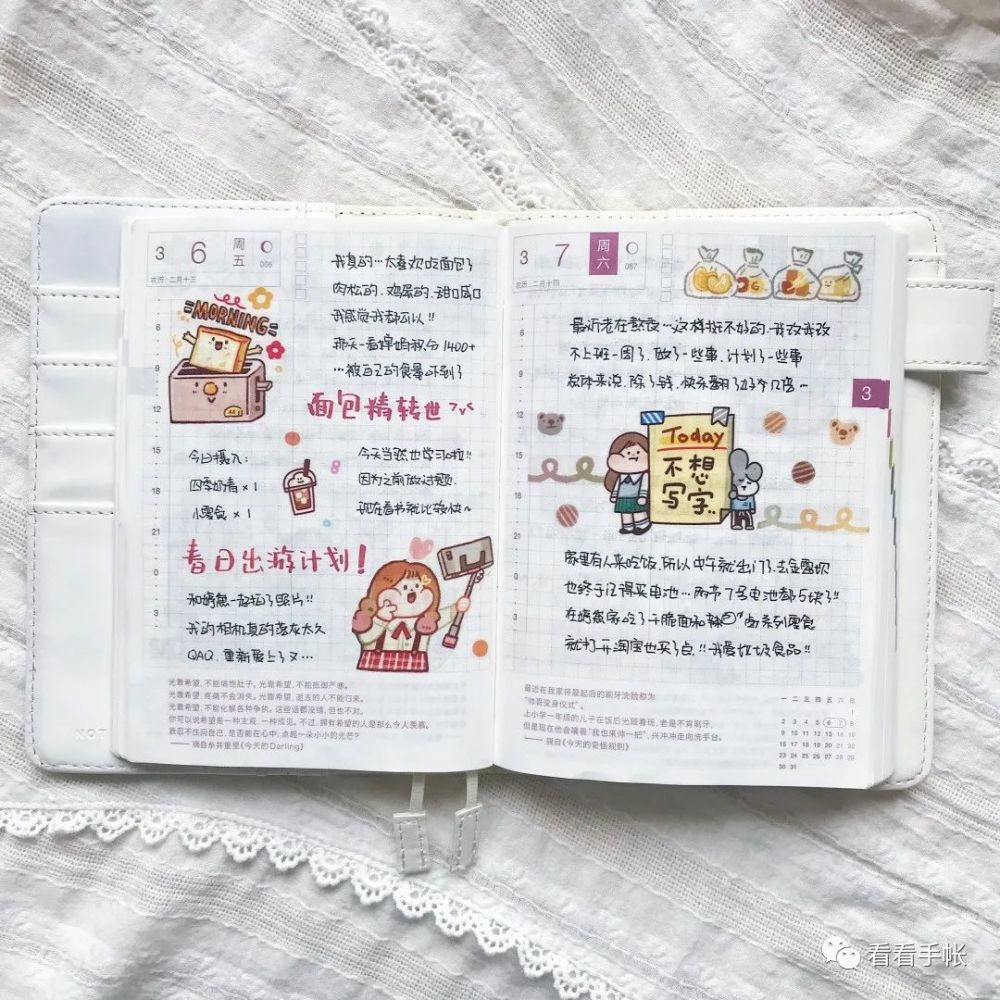 3 6 周五 066
农历·二月十三
我真的…太喜欢吃面包了
肉松的.鸡蛋的.甜口咸口
我感觉我都可以!!
那天一看蜂鸣积分1400+
…被自己的食量吓到了
MORNING
面包精转世
今日摄入:
四季奶青×1
小零食×1
今天当然也学习啦!!
因为之前做过题.
现在看书就比较快~
春日出游计划!
一起拍了照片!!
我的相机真的落灰太久
QAQ.重新爱上了又…
光靠希望,不能填饱肚子。光靠希望,不能抵御严寒。
光靠希望,疼痛不会消失。光靠希望,逝去的人不能归来。
光靠希望,不能化解各种争执。这些话都没错,但也不对。
你可以说希望是一种主观,一种成见。不过,拥有希望的人是那么令人羡慕。
就忍不住问自己,是否能在心中,点起一朵小小的光芒?
——摘自糸井重里《今天的Darling》
NOT
6
9
12
15
18
21
0
3
3 7 周六 067
农历·二月十四
最近老在熬夜…这样挺不好的.我改我改
不上班一周了.做了一些事.计划了一些事
总体来说.除了钱.快乐翻了好多几倍…
3
Today
不想
写字..
家里有人来吃饭,所以中午就出门了.去
也终于记得买电池…两节7号电池都5块了!!
家吃了干脆面和辣 系列零食
就打开淘宝也买了点!!我爱垃圾食品!!
最近在我家将晨起后的刷牙洗脸称为
“帅哥变身仪式”。
上小学一年级的儿子在饭后光顾着玩,老是不肯刷牙,
但是现在他会嚷着“我也来帅一把”,兴冲冲走向洗手台。
——摘自《今天的奇怪规则》
一 二 三 四 五 六 日
1
2 3 4 5 6 7 8
9 10 11 12 13 14 15
16 17 18 19 20 21 22
23 24 25 26 27 28 29
30 31
6
9
12
15
18
21
0
3
看看手帐